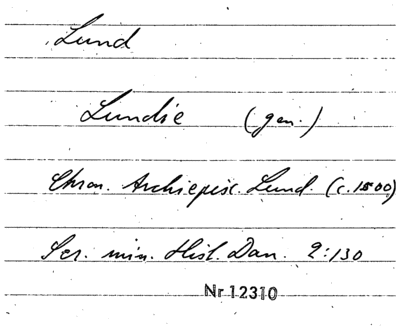 Lund
Lundie (gen.)
Chron. Archiepisc. Lund. (c. 1500)
Scr. min. Hist. Dan. 2:130
Nr 12310